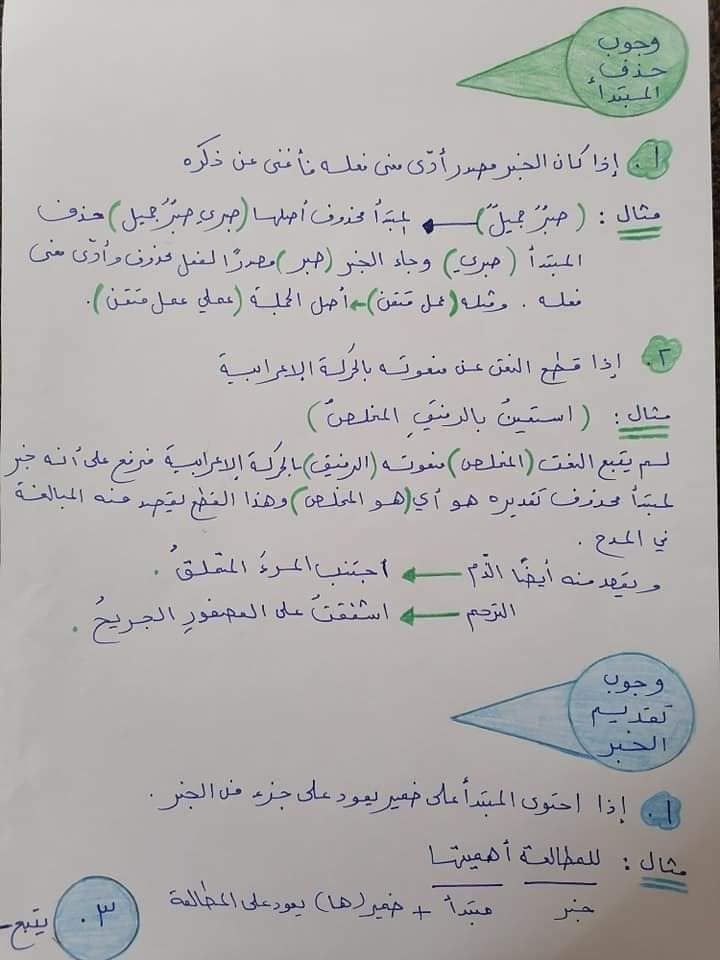 وجوب
حذف
المبتدأ
١. إذا كان الخبر مصدر أدّى معنى فعله فأغنى عن ذكره
مثال : (صبرٌ جميلٌ) ← المبتدأ محذوف أصلها (صبري صبرٌ جميل) حذف
المبتدأ (صبري) وجاء الخبر (صبر) مصدرًا لفعل محذوف وأدّى معنى
فعله . ومثله (عمل متقن) ← أصل الجملة (عملي عمل متقن).
٢. إذا قطع النعت عن منعوته بالحركة الإعرابية
مثال : (استعينُ بالرفيقِ المخلصُ)
لم يتبع النعت (المخلص) منعوته (الرفيق) بالحركة الإعرابية فرفع على أنه خبر
لمبتدأ محذوف تقديره هو أي (هو المخلص) وهذا القطع يقصد منه المبالغة
في المدح .
ويقصد منه أيضًا الذّم ← اجتنب المرءَ المتملقُ .
الترحم ← اشفقتُ على العصفورِ الجريحُ .
وجوب
تقديم
الخبر
١. إذا احتوى المبتدأ على ضمير يعود على جزء من الخبر .
مثال : للمطالعة أهميتها
خبر مبتدأ + ضمير (ها) يعود على المطالعة
٣. يتبع-